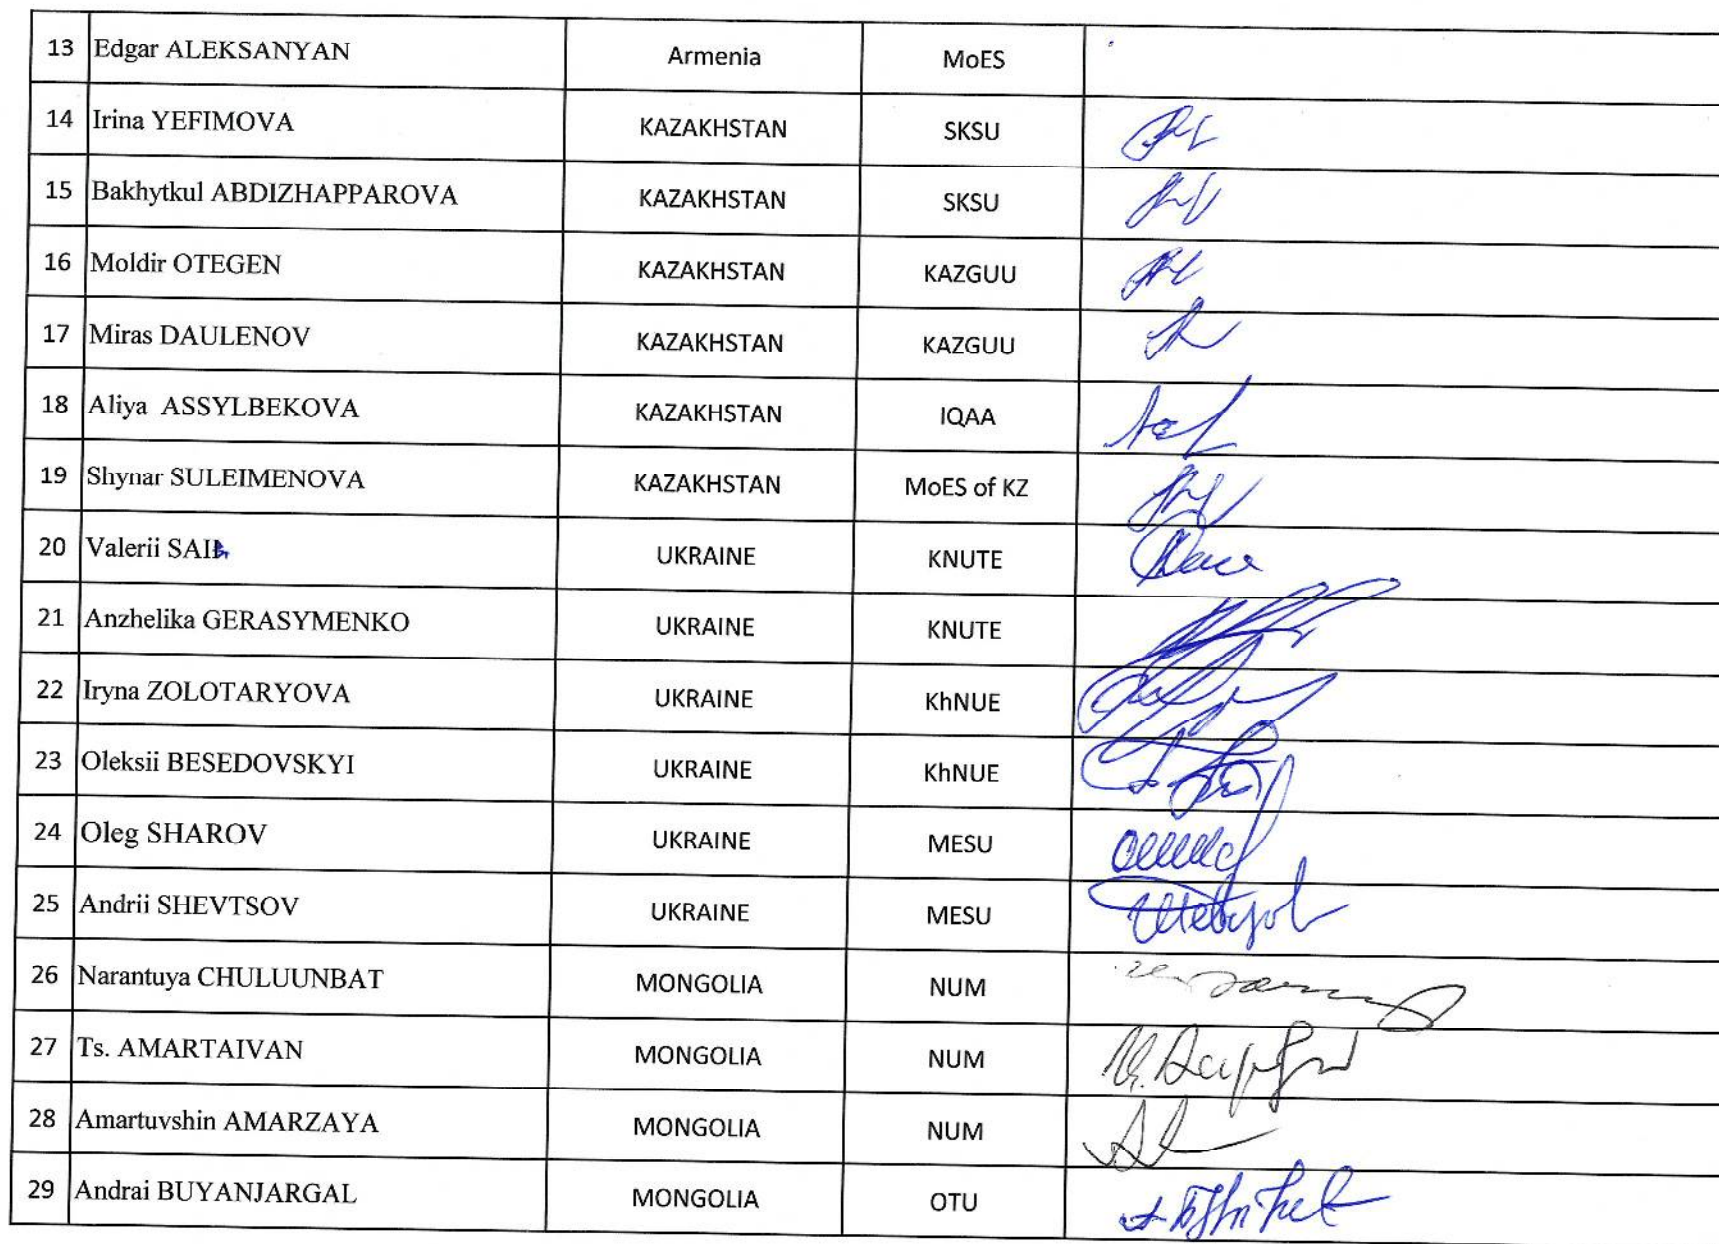 13 Edgar ALEKSANYAN Armenia MoES
14 Irina YEFIMOVA KAZAKHSTAN SKSU
15 Bakhytkul ABDIZHAPPAROVA KAZAKHSTAN SKSU
16 Moldir OTEGEN KAZAKHSTAN KAZGUU
17 Miras DAULENOV KAZAKHSTAN KAZGUU
18 Aliya ASSYLBEKOVA KAZAKHSTAN IQAA
19 Shynar SULEIMENOVA KAZAKHSTAN MoES of KZ
20 Valerii UKRAINE KNUTE
21 Anzhelika GERASYMENKO UKRAINE KNUTE
22 Iryna ZOLOTARYOVA UKRAINE KhNUE
23 Oleksii BESEDOVSKYI UKRAINE KhNUE
24 Oleg SHAROV UKRAINE MESU
25 Andrii SHEVTSOV UKRAINE MESU
26 Narantuya CHULUUNBAT MONGOLIA NUM
27 Ts. AMARTAIVAN MONGOLIA NUM
28 Amartuvshin AMARZAYA MONGOLIA NUM
29 Andrai BUYANJARGAL MONGOLIA OTU